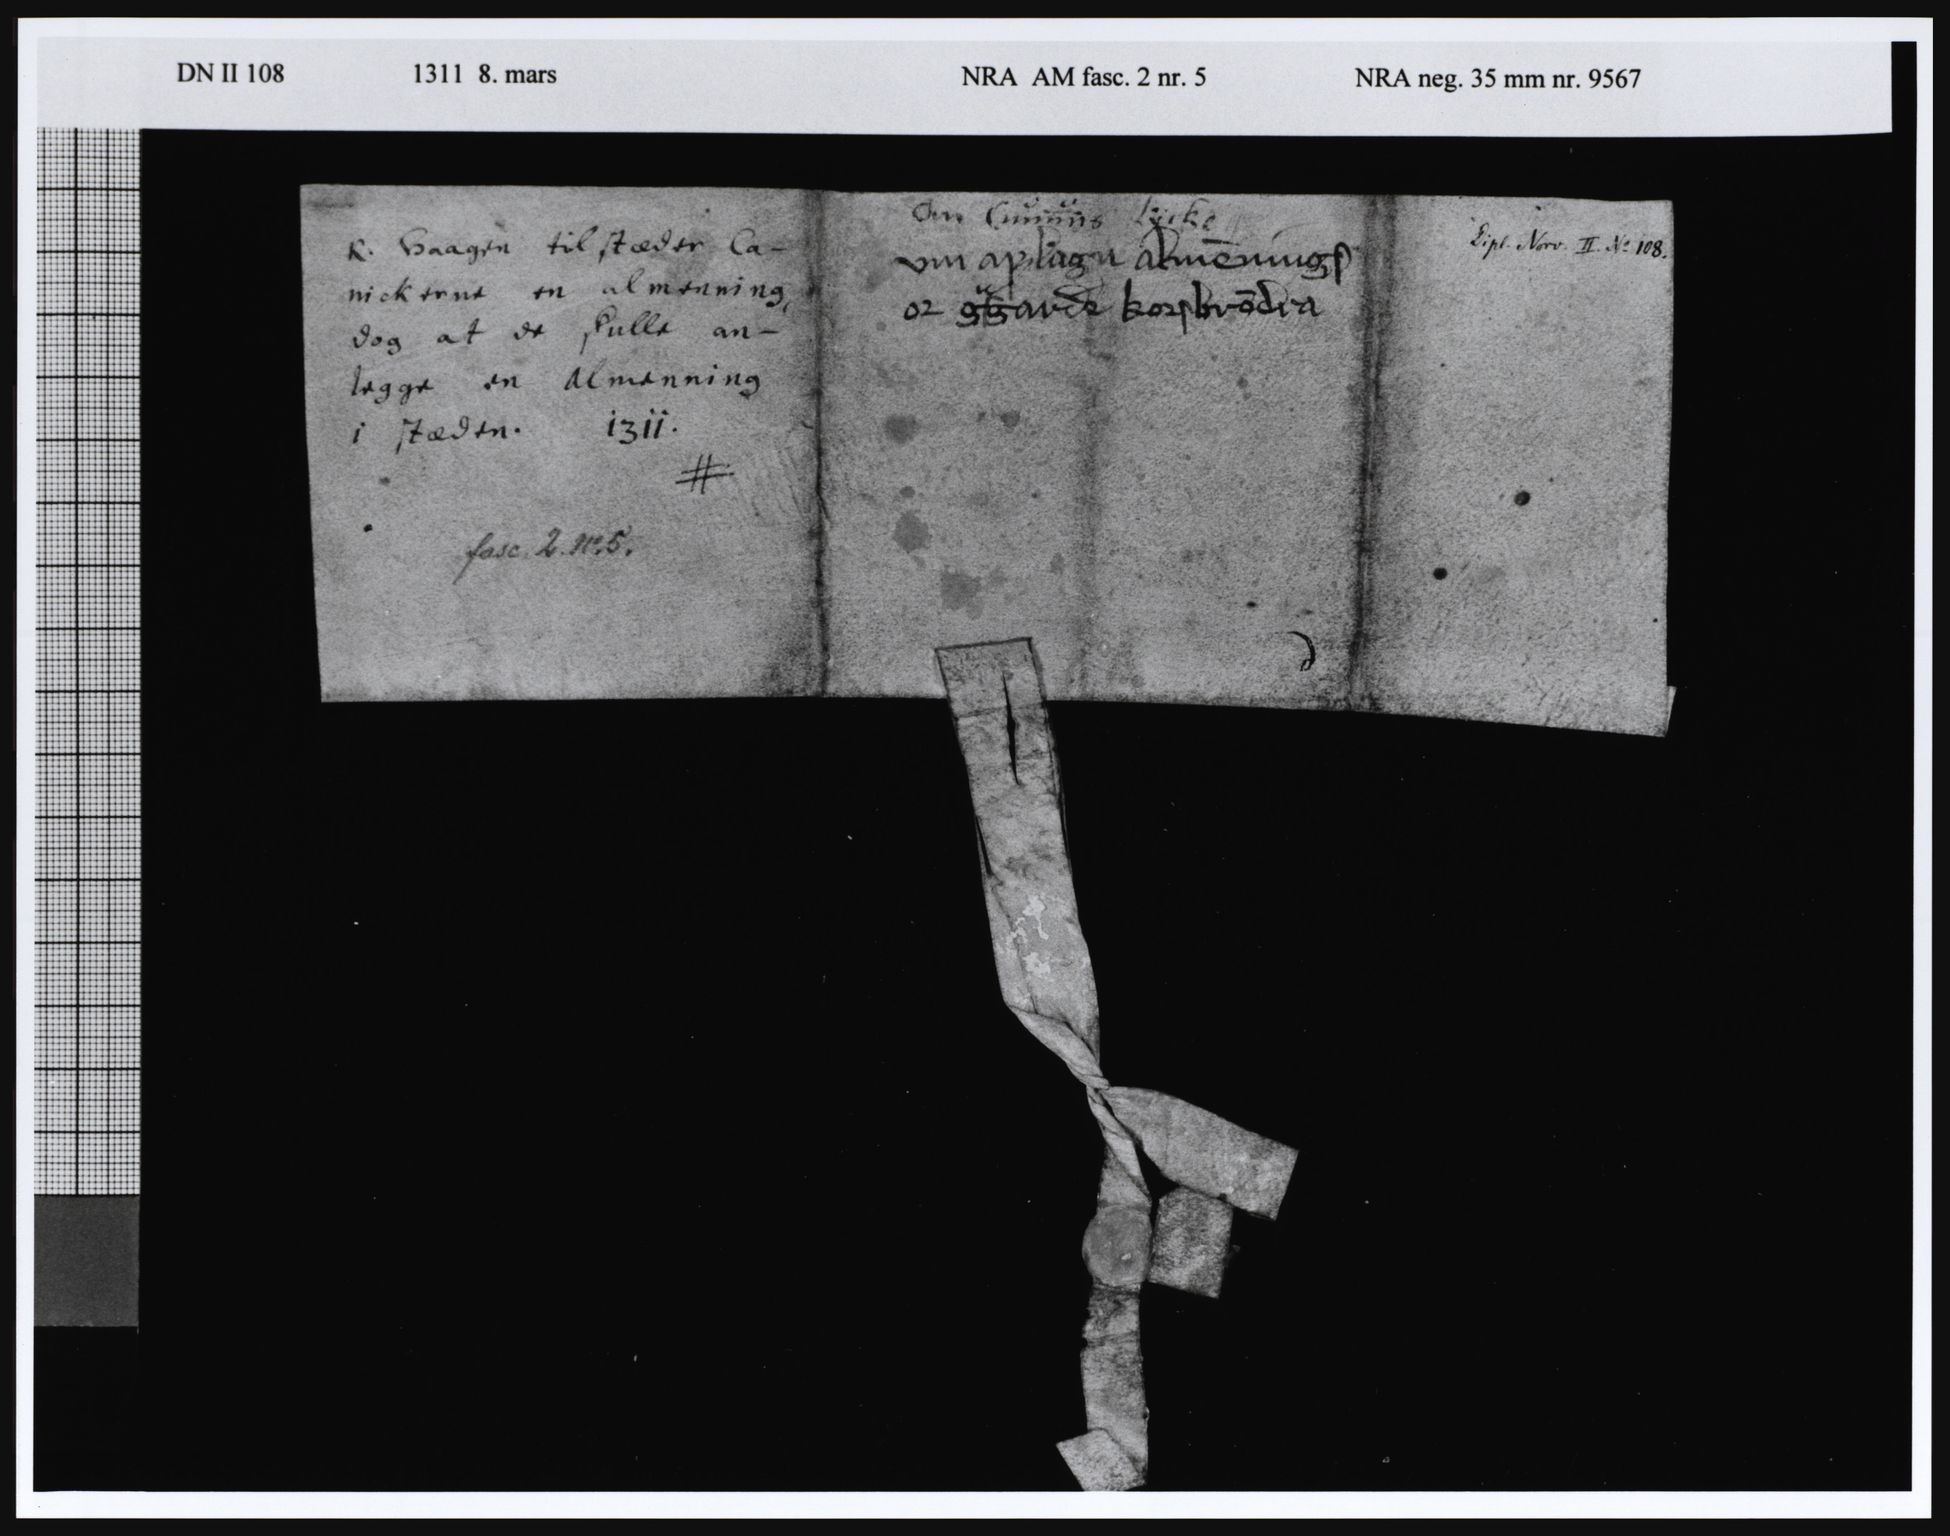 DN II 108 1311 8. mars NRA AM fasc. 2 nr. 5 NRA neg. 35 mm nr. 9567
K. Haagen tilstæder Ca-
nickerne en almenning,
dog at de skulle an-
legge en Almenning
i stæden. 1311.
#
fasc. 2. No. 5.
Om lycke
vm aplagu almēnings
or garðe korsbrōdra
Dipl. Norv. II. No 108.